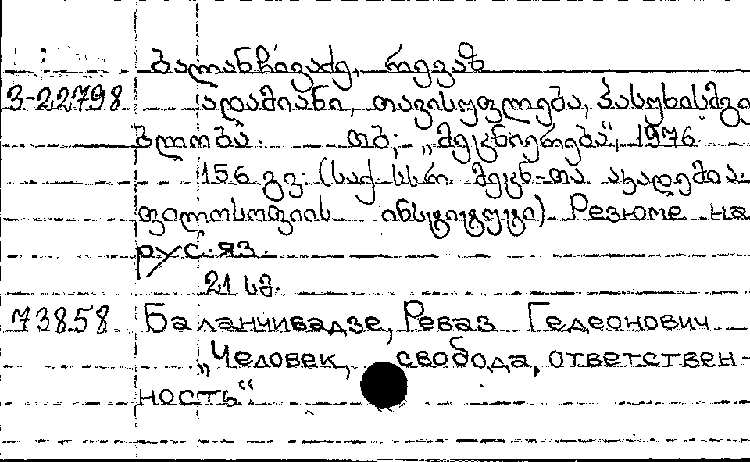 ბალანჩივაძე, რევაზ
3-22798 ადამიანი, თავისუფლება, პასუხისმგე
ბლობა. თბ; „მეცნიერება“, 1976
156 გვ. (საქ. სსრ მეცნ-თა აკადემია.
ფილოსოფიის ინსტიტუტი) Резюме на
рус. яз.
21 სმ.
73858 Баланчивадзе, Реваз Гедеонович
„Человек, свобода, ответствен-
ность“